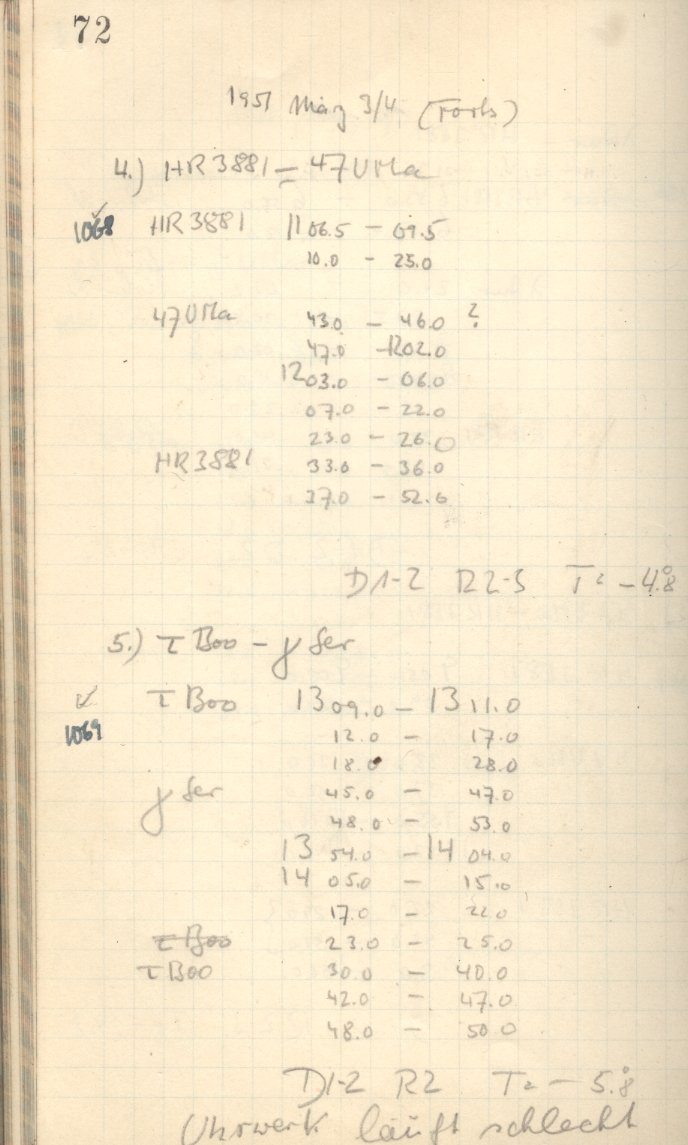 72
1951 März 3/4 (Forts)
4.) HR3881 = 47UMa
1068 ✓ HR3881 11 06.5 - 09.5
10.0 - 25.0
47UMa 43.0 - 46.0 ?
47.0 - 1202.0
12 03.0 - 06.0
07.0 - 22.0
23.0 - 26.0
HR3881 33.0 - 36.0
37.0 - 52.0
D1-2 R2-3 T = -4.°8
5.) τ Boo - γ Ser
✓ τ Boo 13 09.0 - 13 11.0
1069 12.0 - 17.0
18.0 28.0
γ Ser 45.0 - 47.0
48.0 - 53.0
13 54.0 - 14 04.0
14 05.0 - 15.0
17.0 - 22.0
τ Boo 23.0 - 25.0
τ Boo 30.0 - 40.0
42.0 - 47.0
48.0 - 50.0
D1-2 R2 T = - 5.°8
Uhrwerk läuft schlecht